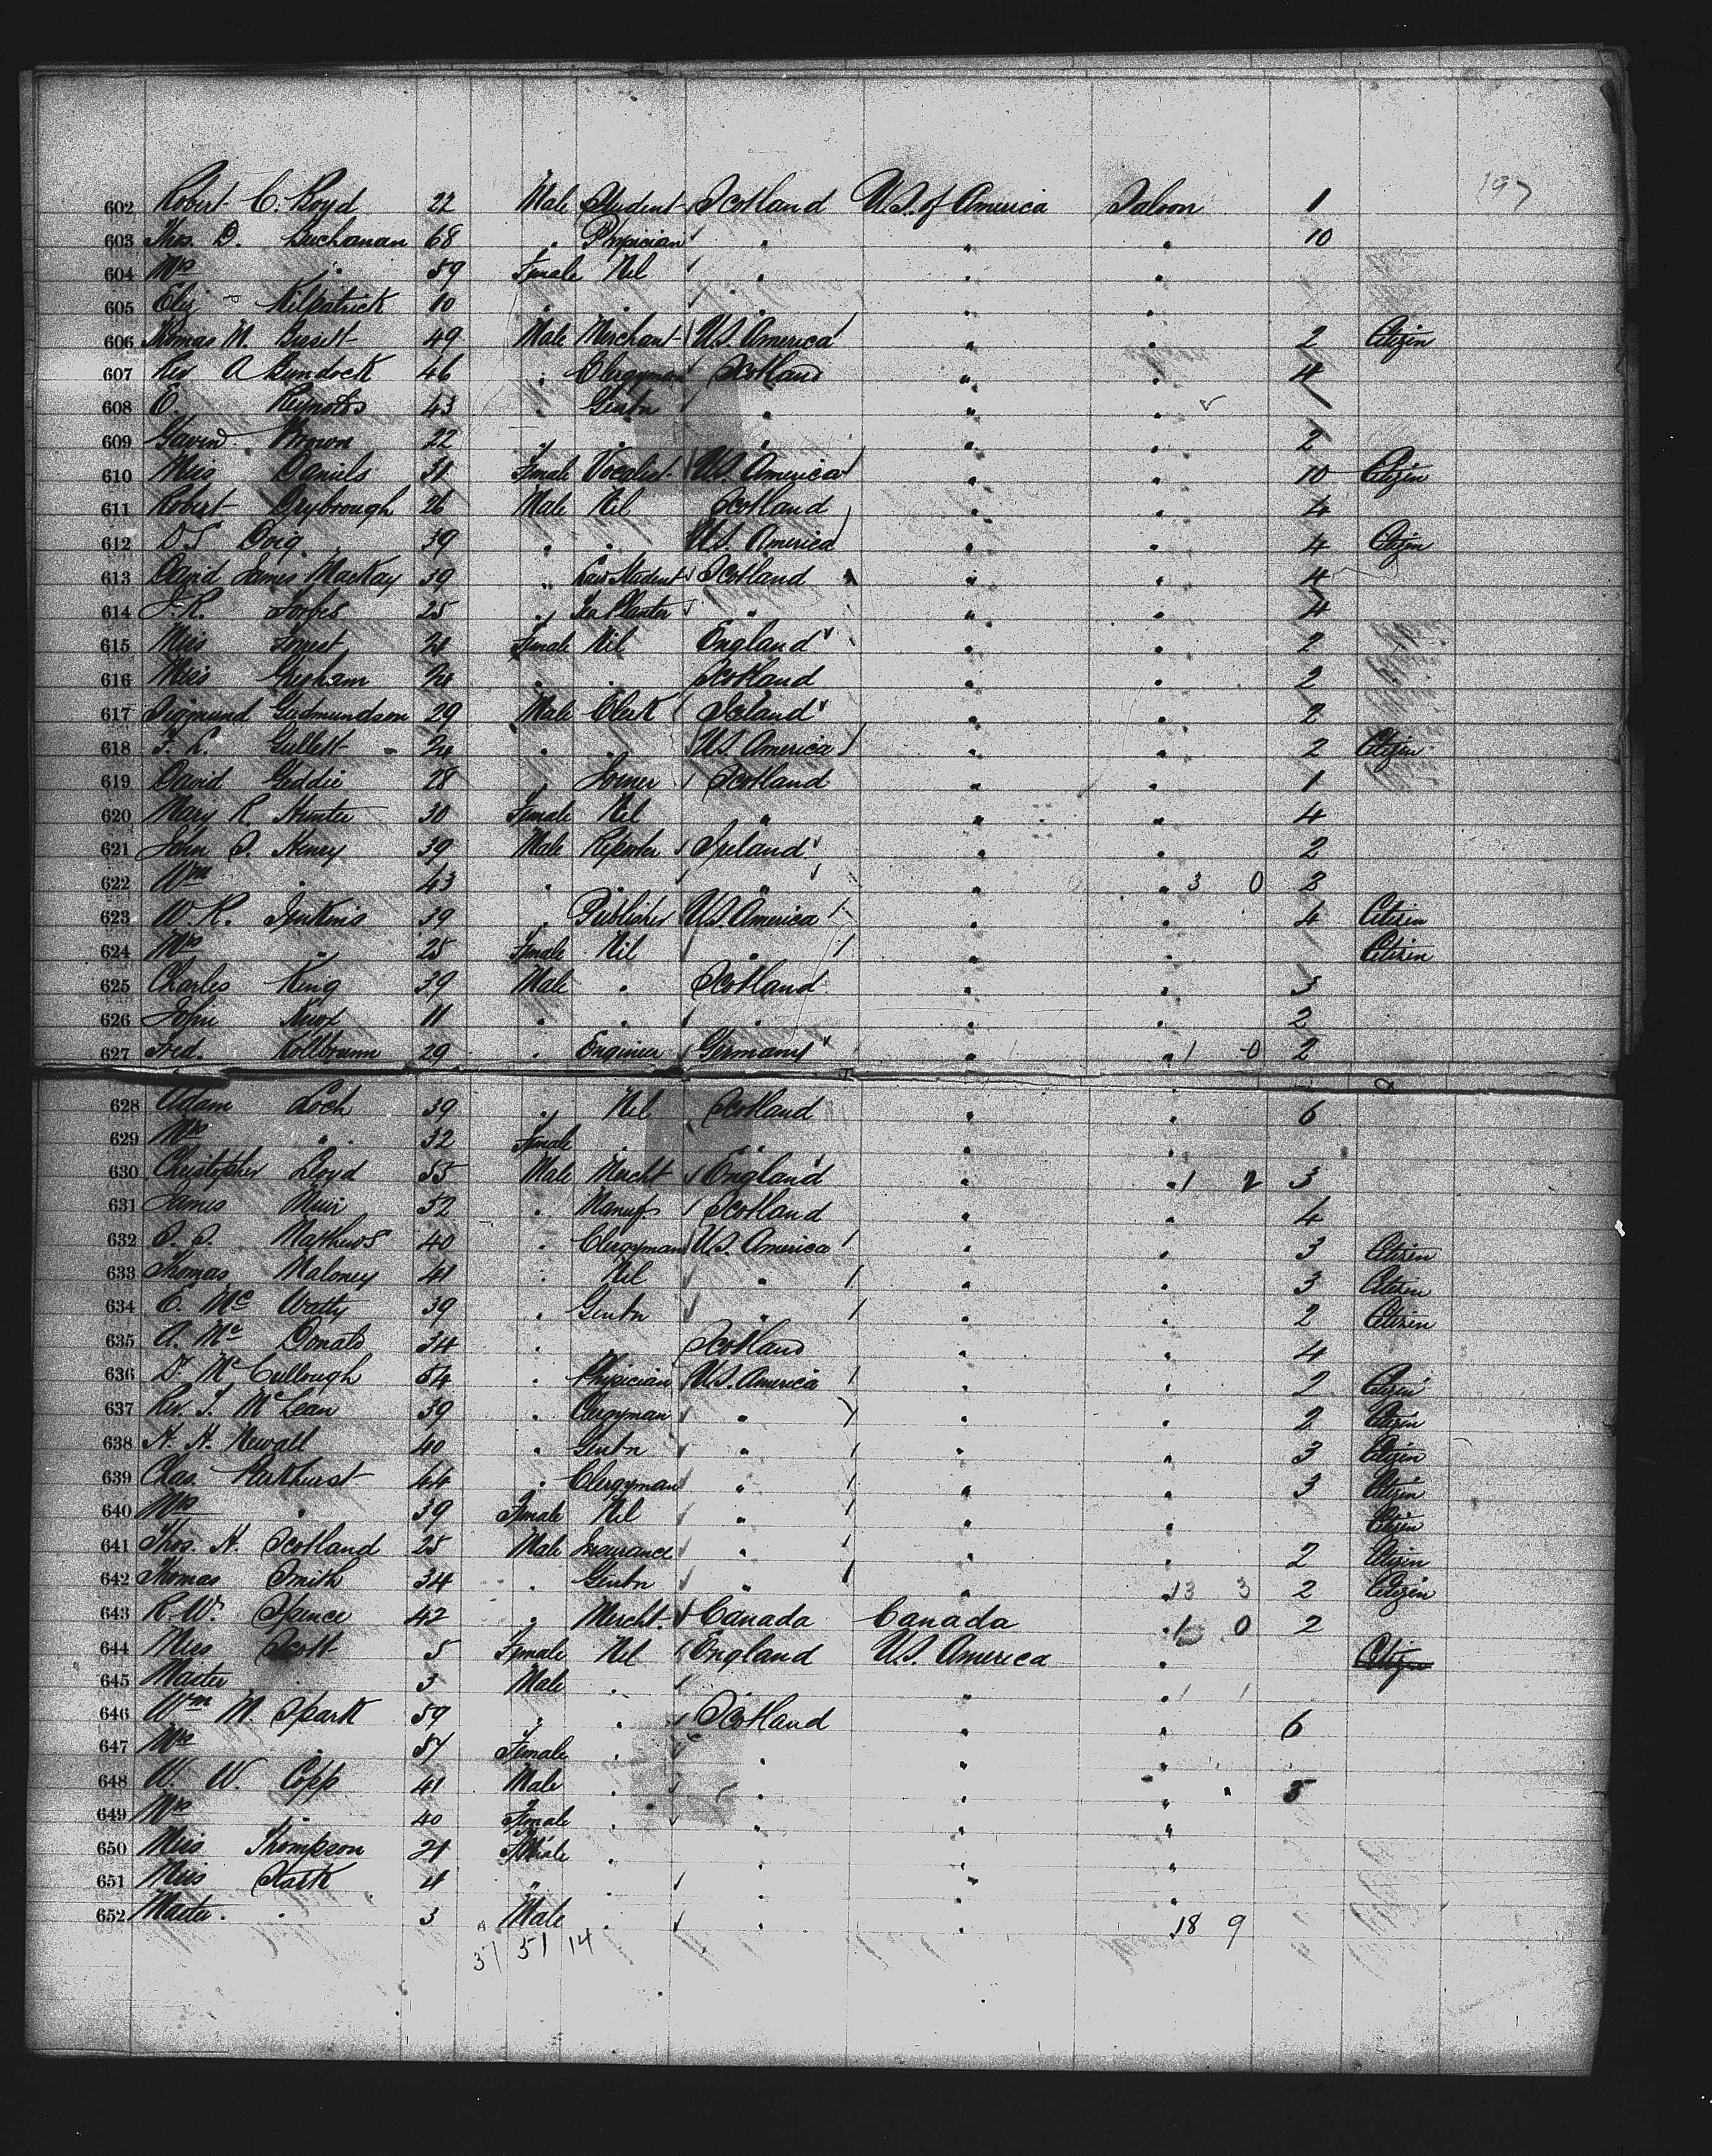 197
602 Robert C. Boyd 22 Male Student Scotland U.S. of America Saloon 1
603 Thos. D. Buchanan 68 " Physician " " " 10
604 Mrs " 59 Female Nil " " "
605 Eliz Kilpatrick 10 " " " " "
606 Thomas M. 49 Male Merchant U.S. America " " 2 Citizen
607 Rev A 46 " Clergyman Scotland " " 4
608 E. Reynolds 43 " Gentn " " " 1
609 Gavin Brown 22 " " " " " 2
610 Miss Daniels 31 Female Vocalist U.S. America " " 10 Citizen
611 Robert Drybrough 26 Male Nil Scotland " " 4
612 D S Doig 39 " " U.S. America " " 4 Citizen
613 David James MacKay 39 " Law Student Scotland " " 4
614 J. R. Forbes 25 " Tea Planter " " " 4
615 Miss Forrest 21 Female Nil England " " 2
616 Miss Grisham 24 " " Scotland " " 2
617 Sigmund Gudmundson 29 Male Clerk Iceland " " 2
618 F. L. Gullett 24 " " U.S. America " " 2 Citizen
619 David Geddie 28 " Joiner Scotland " " 1
620 Mary R. Hunter 30 Female Nil " " " 4
621 John S. Henry 39 Male Reporter Ireland " " 2
622 Wm " 43 " " " " " 3 0 2
623 W. R. Jenkins 39 " Publisher U.S. America " " 4 Citizen
624 Mrs " 25 Female Nil " " " Citizen
625 Charles King 39 Male " Scotland " " 3
626 John Knox 11 " " " " " 2
627 Fred. Kolbrunn 29 " Engineer Germany " " 1 0 2
628 Adam Loch 39 " Nil Scotland " " 6
629 Mrs " 32 Female " " " "
630 Christopher Lloyd 55 Male Mercht England " " 1 2 3
631 James Muir 52 " Manufr Scotland " " 4
632 S. S. Mathews 40 " Clergyman U.S. America " " 3 Citizen
633 Thomas Maloney 41 " Nil " " " 3 Citizen
634 E. Mc Watty 39 " Gentn " " " 2 Citizen
635 A. Mc Donald 34 " Scotland " " 4
636 D. Mc Cullough 54 " Physician U.S. America " " 2 Citizen
637 Rev. J. McLean 39 " Clergyman " " " 2 Citizen
638 H. H. Newall 40 " Gentn " " " 3 Citizen
639 Chas. Parkhurst 44 " Clergyman " " " 3 Citizen
640 Mrs " 39 Female Nil " " " Citizen
641 Thos. H. Scotland 25 Male Insurance " " " 2 Citizen
642 Thomas Smith 34 " Gentn " " " 13 3 2 Citizen
643 R. W. Spence 42 " Mercht. Canada Canada " 1 0 2
644 Miss Scott 5 Female Nil England U.S. America " Citizen
645 Master " 3 Male " " " " 1 1
646 Wm M. Spark 59 " " Scotland " " 6
647 Mrs " 57 Female " " " "
648 W. W. Copp 41 Male " " " " 5
649 Mrs " 40 Female " " " "
650 Miss Thompson 21 Female " " " "
651 Miss Stark 4 " " " "
652 Master " 3 Male " " " 18 9
37 51 14